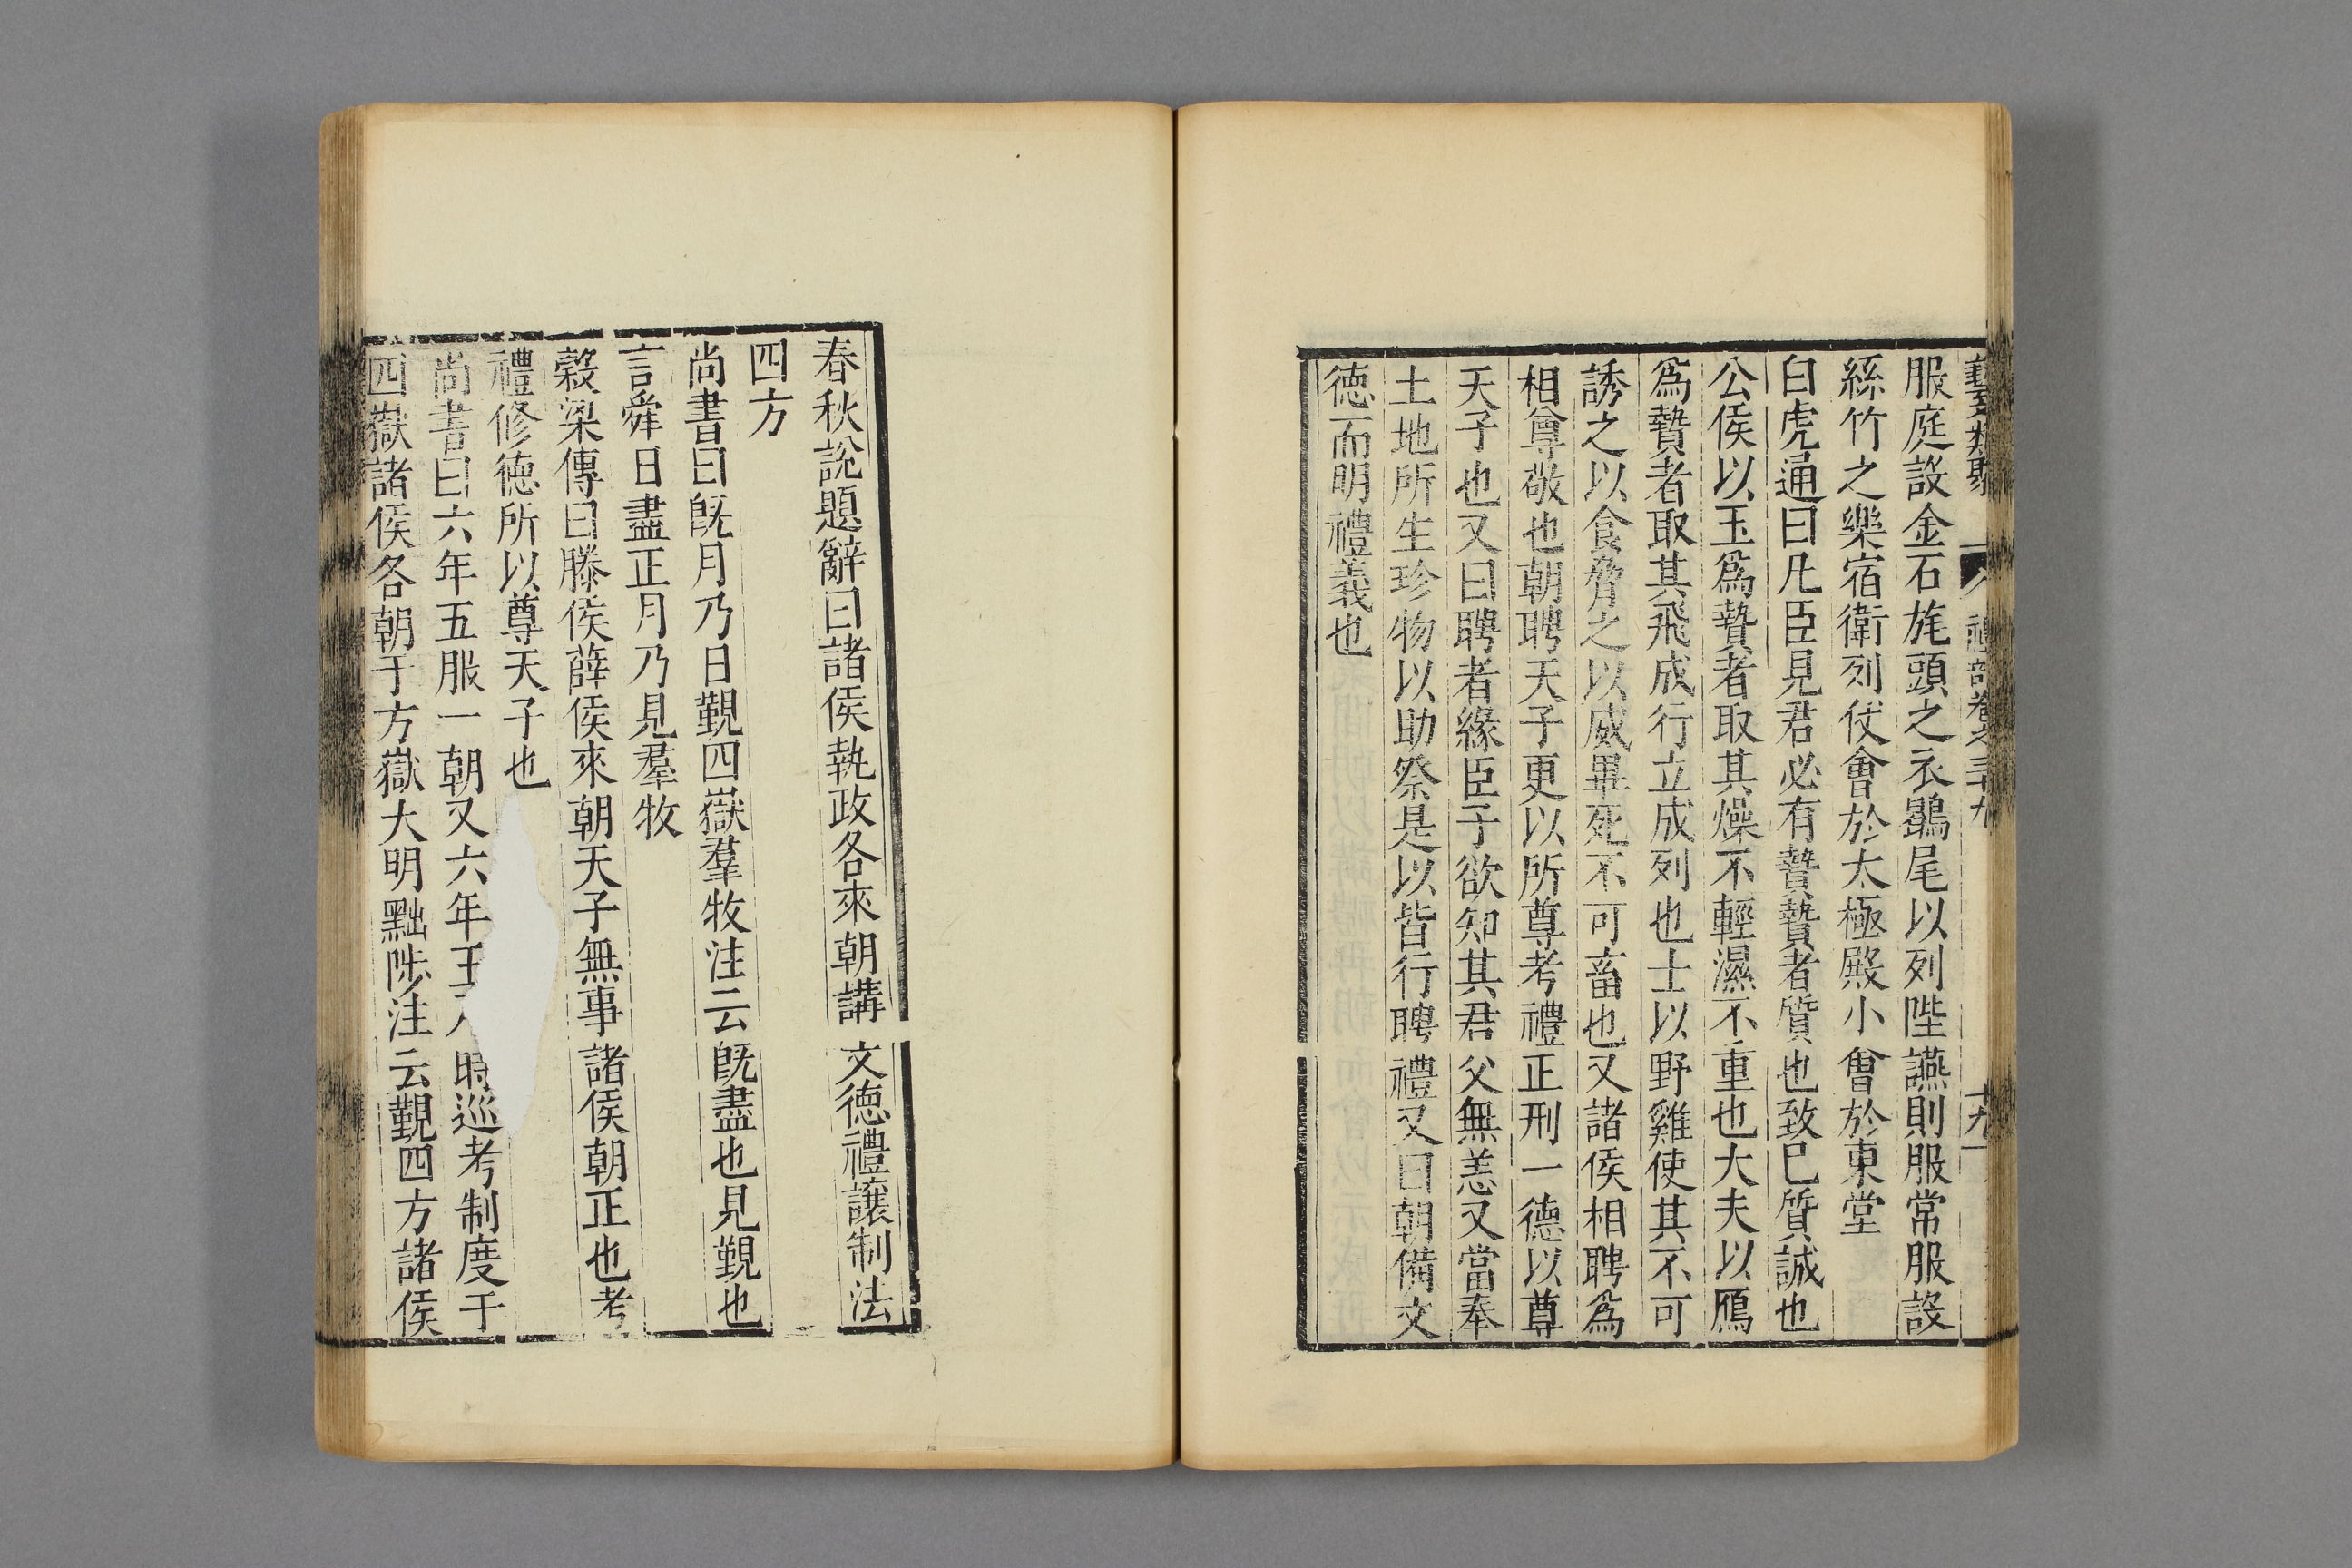 藝文類聚 禮部卷之三十九 十九
服庭設金石旄頭之衣鶡尾以列陛讌則服常服設
絲竹之樂宿衛列仗會於太極殿小會於東堂
白虎通曰凡臣見君必有贄贄者質也致已質誠也
公侯以玉爲贄者取其燥不輕濕不重也大夫以鴈
爲贄者取其飛成行立成列也士以野雞使其不可
誘之以食脅之以威畢死不可畜也又諸侯相聘爲
相尊敬也朝聘天子更以所尊考禮正刑一德以尊
天子也又曰聘者緣臣子欲知其君父無恙又當奉
土地所生珍物以助祭是以皆行聘禮又曰朝備文
德而明禮義也
春秋說題辭曰諸侯執政各來朝講文德禮讓制法
四方
尚書曰旣月乃日覲四嶽羣牧注云旣盡也見覲也
言舜日盡正月乃見羣牧
穀梁傳曰滕侯薛侯來朝天子無事諸侯朝正也考
禮修德所以尊天子也
尚書曰六年五服一朝又六年王時巡考制度于
四嶽諸侯各朝于方嶽大明黜陟注云覲四方諸侯